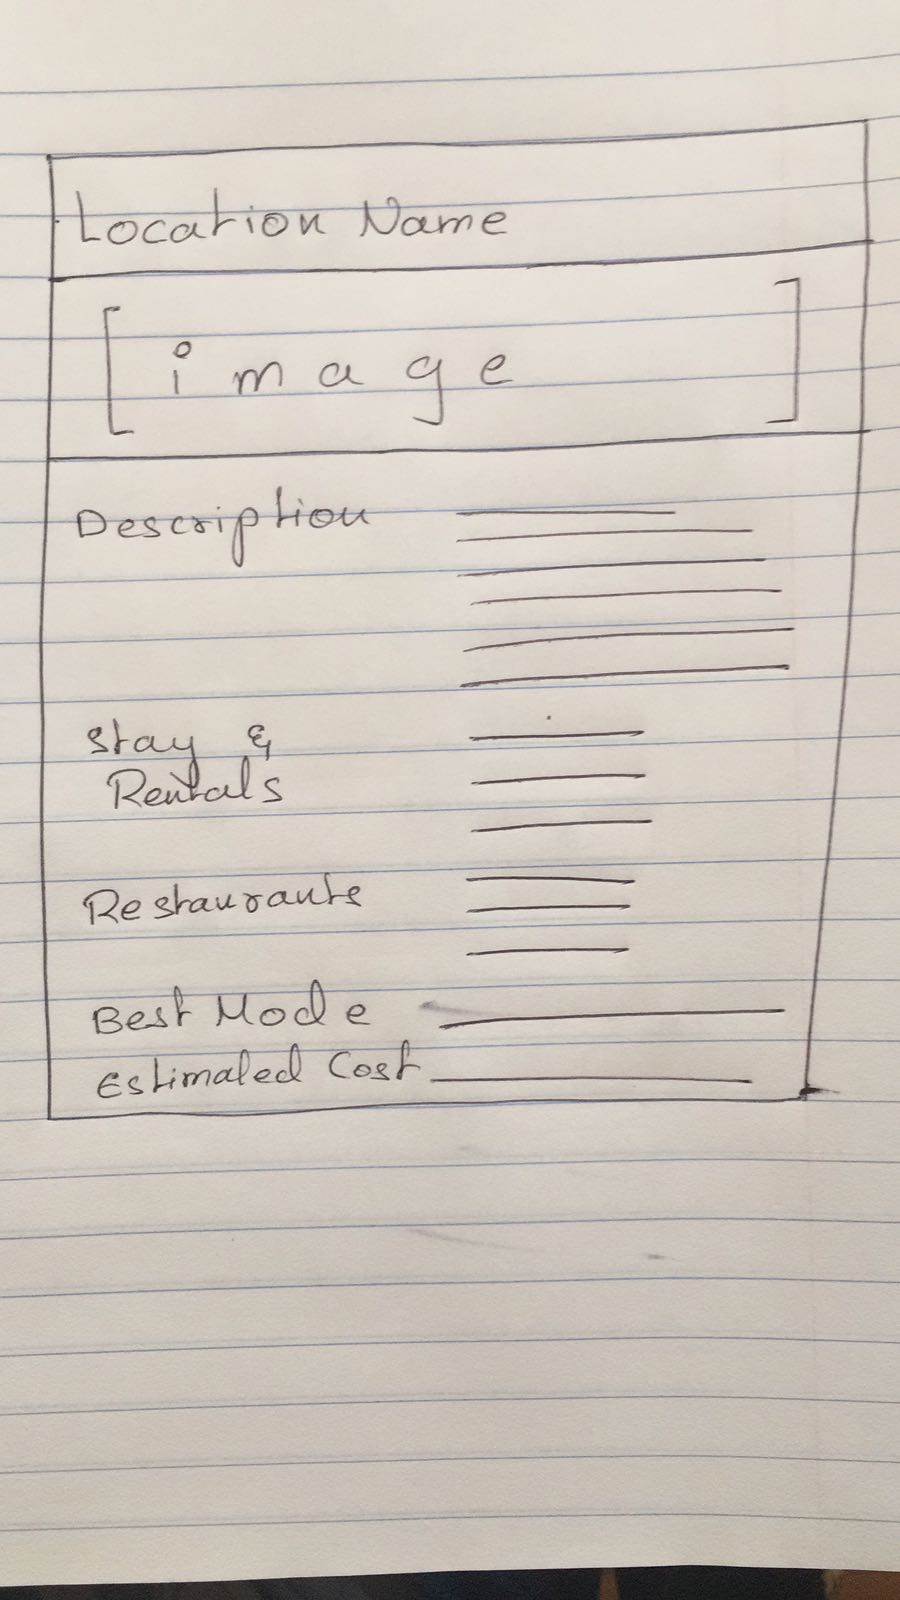 Location Name
[ image ]
Description
Stay &
Rentals
Restaurants
Best Mode
Estimated Cost